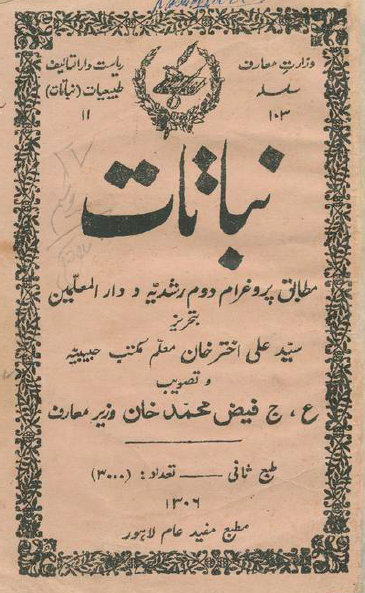 وزارت معارف
سلسله
۱۰۳
ریاست دارالتالیف
طبیعیات (نباتات)
۱۱
نباتات
مطابق پروغرام دوم رشدیه و دار المعلمین
بتحریر
سید علی اختر خان معلم مکتب حبیبیه
و تصویب
ع ، ج فیض محمد خان وزیر معارف
طبع ثانی — تعداد: (۳۰۰۰)
۱۳۰۶
مطبع مفید عام لاهور